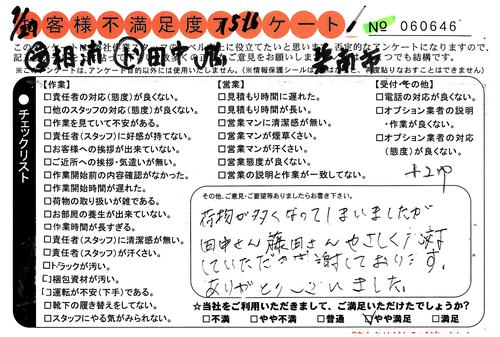 お客様不満足度アンケート!
No 060646
【作業】
□責任者の対応(態度)が良くない。
□他のスタッフの対応(態度)が良くない。
□作業を見ていて不安がある。
□責任者(スタッフ)に好感が持てない。
□お客様への挨拶が出来ていない。
□ご近所への挨拶・気遣いが無い。
□作業開始前の内容確認がなかった。
□作業開始時間が遅れた。
□荷物の取り扱いが雑である。
□お部屋の養生が出来ていない。
□作業時間が長すぎる。
□責任者(スタッフ)に清潔感が無い。
□責任者(スタッフ)が汗くさい。
□トラックが汚い。
□梱包資材が汚い。
□運転が不安(下手)である。
□靴下の履き替えをしてない。
□スタッフにやる気がみられない。
【営業】
□見積もり時間に遅れた。
□見積もり時間が長い。
□営業マンに清潔感が無い。
□営業マンが煙草くさい。
□営業マンが汗くさい。
□営業態度が良くない。
□営業の説明と作業が一致してない。
【受付・その他】
□電話の対応が良くない。
□オプション業者の説明
・作業が良くない。
□オプション業者の対応
(態度)が良くない。
●チェックリスト
その他、ご意見・ご要望等ありましたらお書き下さい。
荷物が多くなってしまいましたが
田中さん 藤田さん やさしく対
していただき 謝しております。
ありがとうございました。
☆当社をご利用いただきまして、ご満足いただけたでしょうか?
□不満 □やや不満 □普通 □やや満足 □満足